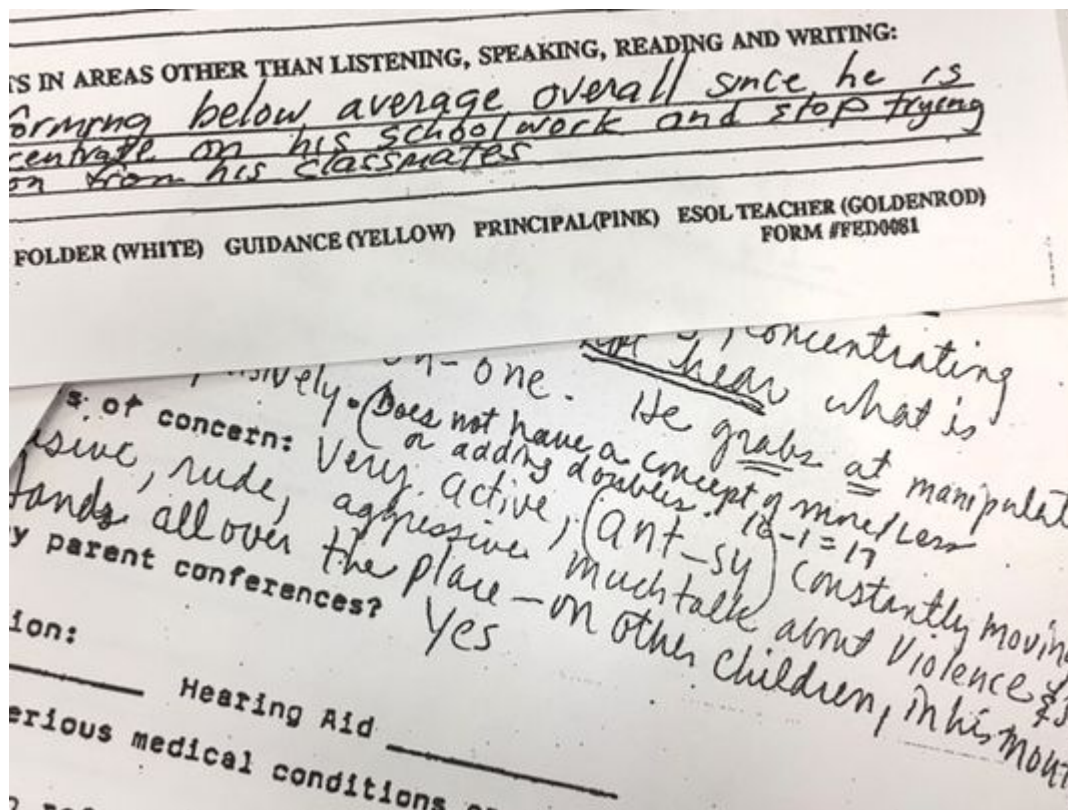 TS IN AREAS OTHER THAN LISTENING, SPEAKING, READING AND WRITING:
orming below average overall since he is
centrate on his schoolwork and stop trying
on from his classmates
FOLDER (WHITE) GUIDANCE (YELLOW) PRINCIPAL(PINK) ESOL TEACHER (GOLDENROD)
FORM #FED0081
concentrating
on-one. not hear what is
sively. He grabs at manipulat
(Does not have a concept of more/less
or adding doubles. 16-1=17
s of concern: Very active, (ant-sy) constantly moving
sive, rude, aggressive, much talk about violence &
Hands all over the place - on other children, in his mout
y parent conferences? Yes
ion:
Hearing Aid
erious medical conditions